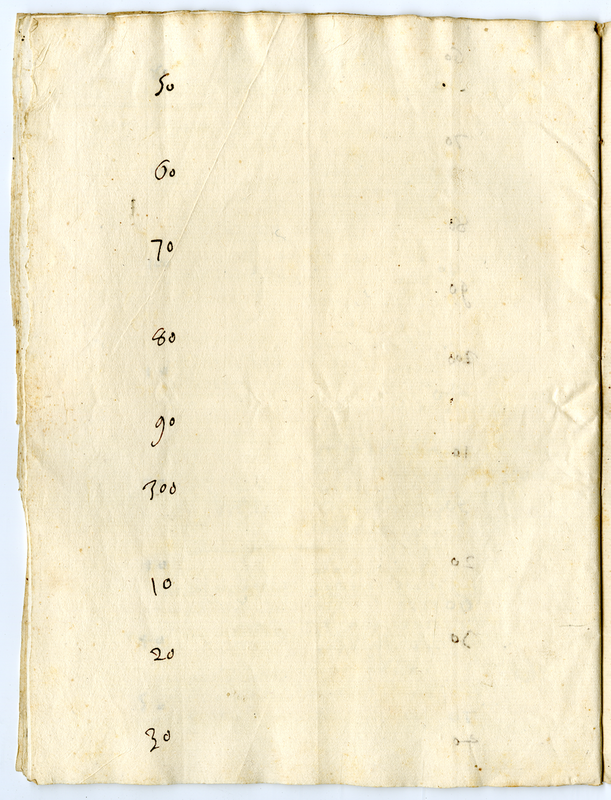 50
60
70
80
90
300
10
20
30